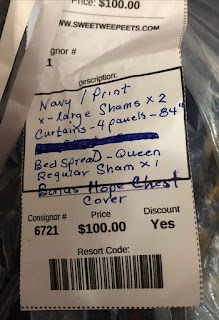 Price: $100.00
WW.SWEETWEEPEETS.COM
gnor #
1
Description:
Navy / Print
x-large Shams x 2
Curtains - 4 panels - 84"
Bed Spread - Queen
Regular Sham x 1
Bonus Hope Chest
Cover
Consignor # Price Discount
6721 $100.00 Yes
Resort Code: